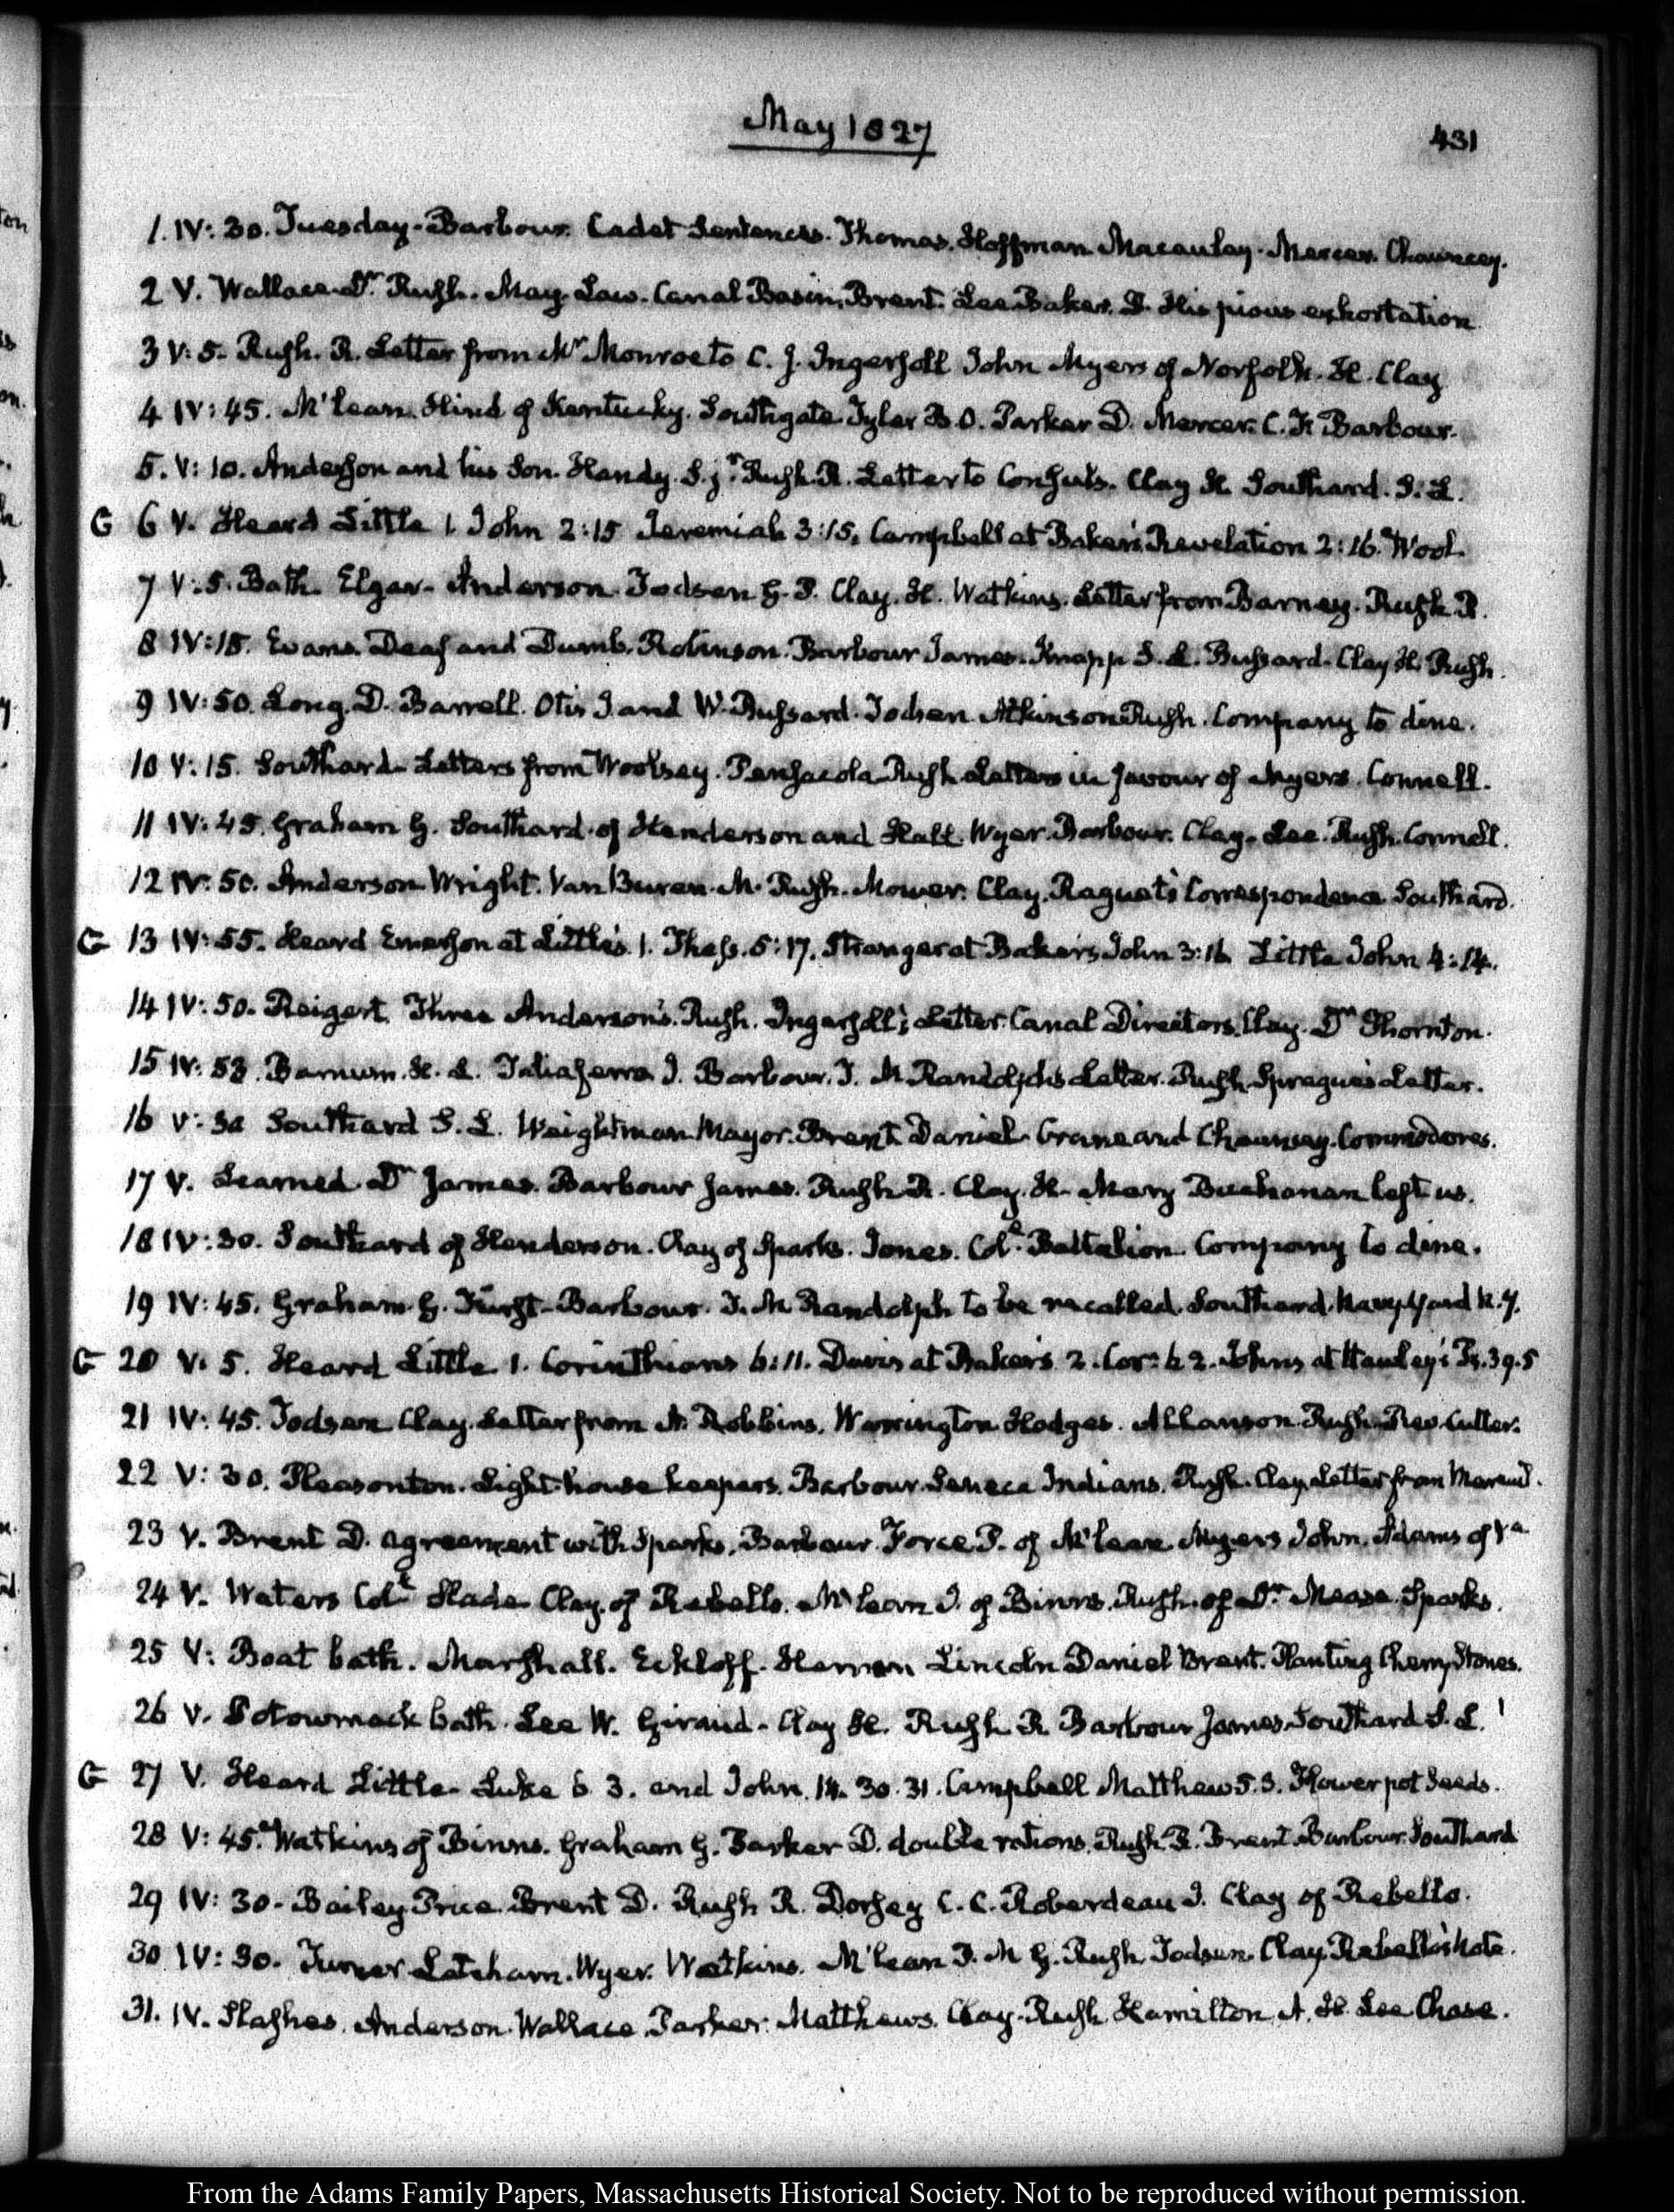 May 1827
431
1. IV: 30. Tuesday. Barbour. Cadet Sentences. Thomas. Hoffman. Macaulay. Mercer. Chauncey.
2 V. Wallace Dr. Rush. May. Law. Canal Basin. Brent. Lee. Baker. D. His pious exhortation
3 V: 5. Rush. R. Letter from Mr Monroe to C. J. Ingersoll John Myers of Norfolk. H. Clay
4 IV: 45. McLean. Hind of Kentucky. Southgate. Tyler B. O. Parker D. Mercer. C. F. Barbour.
5. V: 10. Anderson and his Son. Handy. S. jr. Rush. R. Letter to Consuls. Clay H. Southard. S. L.
G 6 V. Heard Little 1 John 2:15 Jeremiah 3:15. Campbell at Baker's Revelation 2:16. Wool.
7 V: 5. Bath. Elgar. Anderson. Jodsen G. P. Clay. H. Watkins. Letter from Barney. Rush R.
8 IV: 15. Evans. Deaf and Dumb. Robinson. Barbour James. Knapp S. L. Bussard. Clay H. Rush.
9 IV: 50. Long. D. Barrell. Otis J. and W. Bussard. Jodsen Atkinson Rush. Company to dine.
10 V: 15. Southard. Letters from Woolsey. Pensacola. Rush Letters in favour of Myers. Connell.
11 IV: 45. Graham G. Southard. of Henderson and Hall. Wyer. Barbour. Clay. Lee. Rush. Connell.
12 IV: 50. Anderson Wright. Van Buren. M. Rush. Mower. Clay. Raguet's Correspondence Southard.
G 13 IV: 55. Heard Emerson at Little's. 1. Thess. 5:17. Stranger at Baker's John 3:16 Little John 4:14.
14 IV: 50. Reigert. Three Anderson's. Rush. Ingersoll's Letter. Canal Directors. Clay. Dr Thornton.
15 IV: 53. Barnum. H. L. Taliaferro J. Barbour. T. M. Randolph's Letter. Rush. Sprague's Letter.
16 V: 30 Southard S. L. Weightman Mayor. Brent Daniel. Crane and Chauncey. Commodores.
17 V. Learned. Dr James. Barbour James. Rush R. Clay. H. Mary Buchanan left us.
18 IV: 30. Southard of Henderson. Clay of Sparks. Jones. Col. Battalion. Company to dine.
19 IV: 45. Graham. G. Furst. Barbour. T. M. Randolph to be recalled. Southard. Navy Yard N.Y.
G 20 V: 5. Heard Little 1. Corinthians 6:11. Davis at Baker's 2. Cor: 6 2. Johns at Hawley's Ps. 39. 5
21 IV: 45. Jodsen Clay. Letter from A. Robbins. Warrington. Hodges. Allanson Rush. Rev. Cutler.
22 V: 30. Pleasonton. Light-house keepers. Barbour. Seneca Indians. Rush. Clay. Letter from Mareuil.
23 V. Brent D. agreement with Sparks. Barbour. Force P. of McLean Myers John. Adams of Va
24 V. Waters Col. Slade Clay. of Rebello. McLean J. of Binns. Rush. of Dr. Mease. Sparks.
25 V: Boat bath. Marshall. Eckloff. Lincoln Daniel Brent. Planting Cherry Stones.
26 V. Potowmack bath. Lee W. Giraud. Clay H. Rush R. Barbour James. Southard S. L.
G 27 V. Heard Little. Luke 6 3. and John. 14. 30. 31. Campbell Matthew 5. 3. Flower pot Seeds.
28 V: 45. Watkins of Binns. Graham G. Parker D. double rations. Rush R. Brent. Barbour. Southard
29 IV: 30. Bailey. Price. Brent D. Rush R. Dorsey C. C. Roberdeau I. Clay of Rebello.
30 IV: 30. Turner Latcham. Wyer. Watkins. McLean J. M G. Rush Jodsen. Clay. Rebello's Note.
31. IV. Anderson. Wallace. Parker. Matthews. Clay. Rush. Hamilton. A. H. Lee Chase.
From the Adams Family Papers, Massachusetts Historical Society. Not to be reproduced without permission.